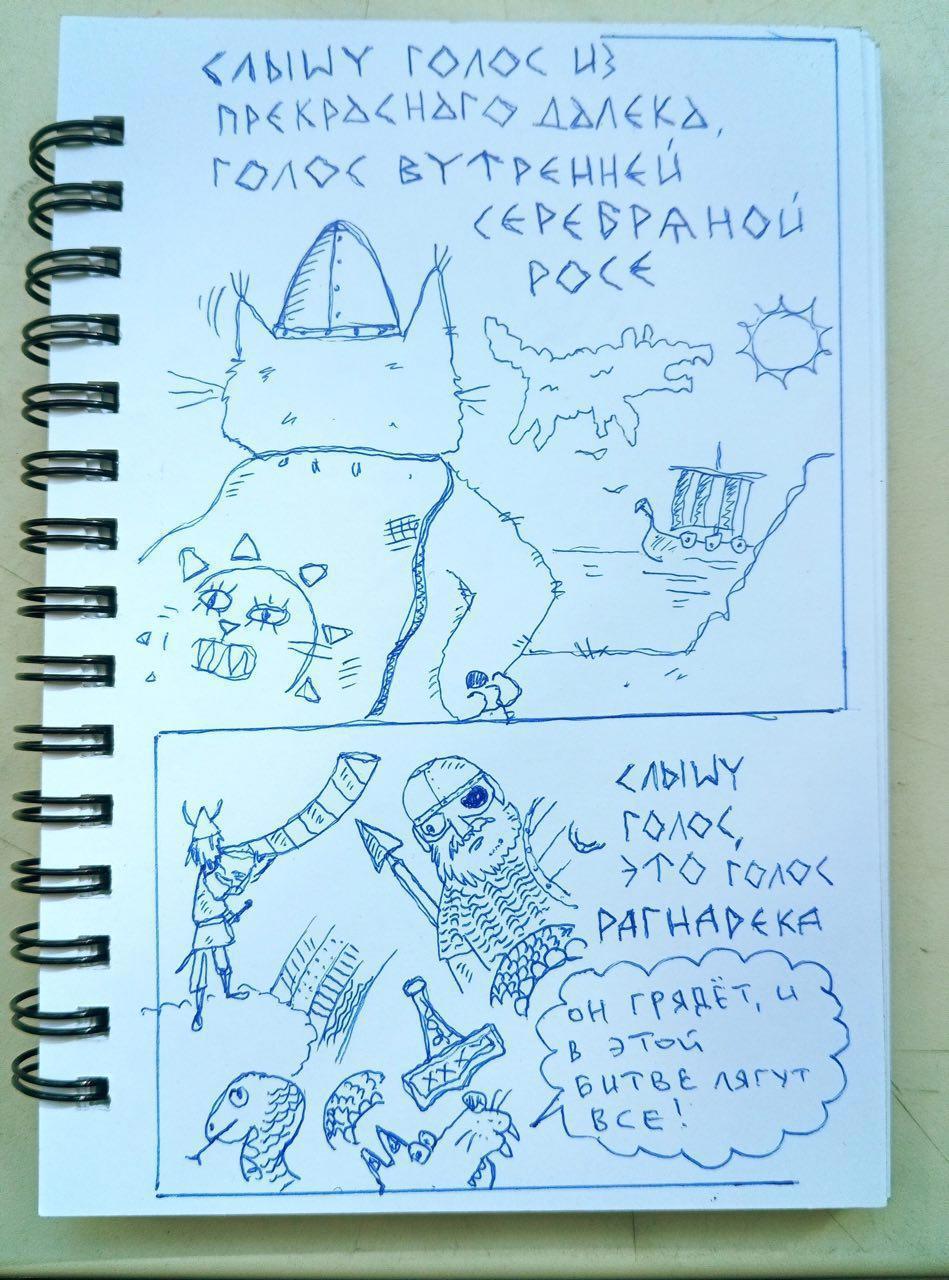 СЛЫШУ ГОЛОС ИЗ
ПРЕКРАСНАГО ДАЛЕКА,
ГОЛОС ВУТРЕННЕЙ
СЕРЕБРЯНОЙ
РОСЕ
СЛЫШУ
ГОЛОС,
ЭТО ГОЛОС
РАГНАРЕКА
ОН ГРЯДЁТ, И
В ЭТОЙ
БИТВЕ ЛЯГУТ
ВСЕ!